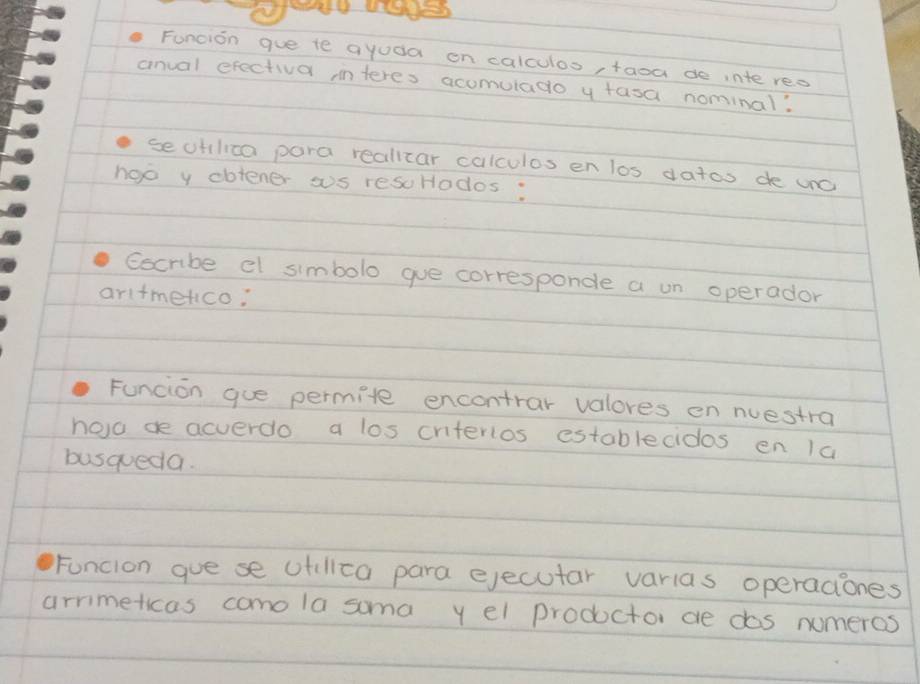 • Función que te ayuda en calculos, tasa de interes
anual efectiva, interes acumulado y tasa nominal:
• se utiliza para realizar calculos en los datos de una
hoja y obtener sus resultados:
• Escribe el simbolo que corresponde a un operador
aritmetico:
• Función que permite encontrar valores en nuestra
hoja de acuerdo a los criterios establecidos en la
busqueda.
• Funcion que se utiliza para ejecutar varias operaciones
arrimeticas como la suma y el producto de dos numeros